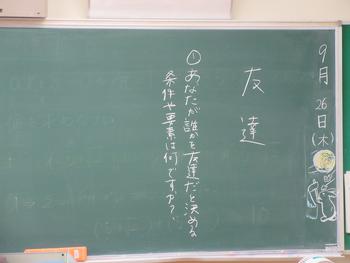 9月26日(木)
友達
①あなたが誰かを友達だと決める
条件や要素は何ですか？